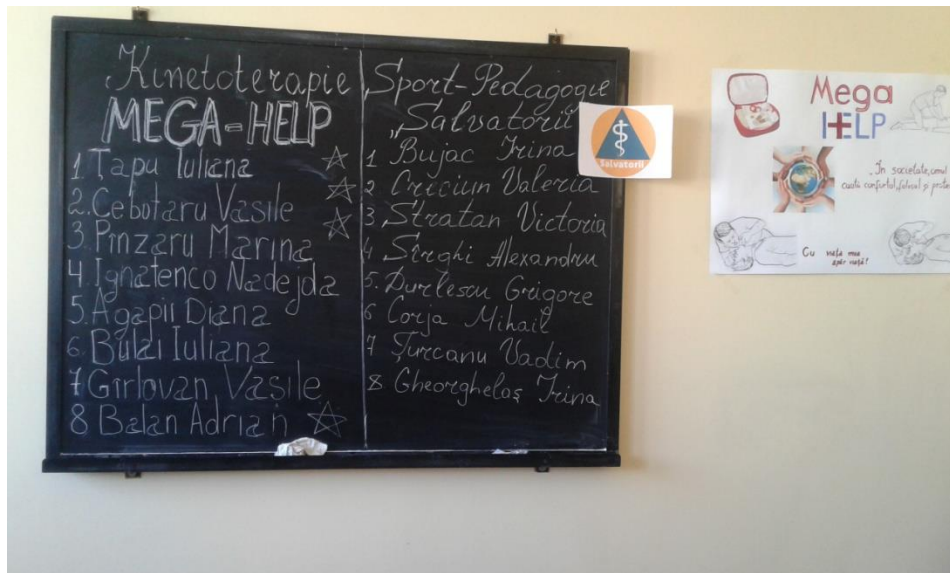 Kinetoterapie
MEGA-HELP
1 Țapu Iuliana
2. Cebotaru Vasile
3. Pinzaru Marina
4. Ignatenco Nadejda
5. Agapii Diana
6. Bulai Iuliana
7 Girlovan Vasile
8 Balan Adrian
Sport-Pedagogie
„Salvatorii”
1 Bujac Irina
2 Crăciun Valeria
3. Stratan Victoria
4 Sîrghi Alexandru
5. Durlescu Grigore
6 Corja Mihail
7 Țurcanu Vadim
8 Gheorghelaș Irina
Salvatorii
Mega
HELP
„În societate, omul
caută confortul, folosul și
Cu viața mea
apăr viața!